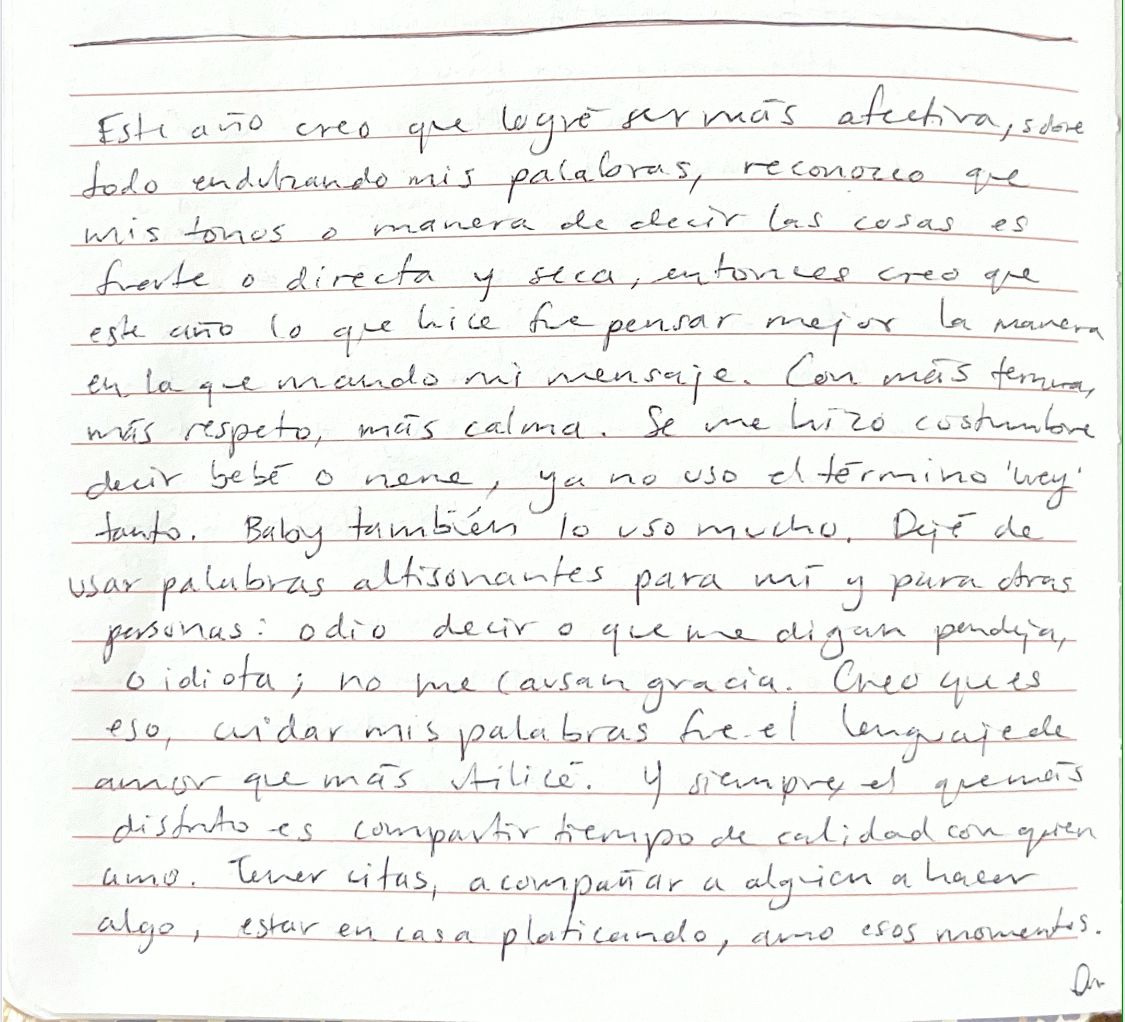 Este año creo que logré ser más afectiva, sobre
todo endulzando mis palabras, reconozco que
mis tonos o manera de decir las cosas es
fuerte o directa y seca, entonces creo que
este año lo que hice fue pensar mejor la manera
en la que mando mi mensaje. Con más ternura,
más respeto, más calma. Se me hizo costumbre
decir bebé o nene, ya no uso el término 'wey'
tanto. Baby también lo uso mucho. Dejé de
usar palabras altisonantes para mí y para otras
personas: odio decir o que me digan pendeja,
o idiota; no me causan gracia. Creo que es
eso, cuidar mis palabras fue el lenguaje de
amor que más utilicé. Y siempre, el que más
disfruto es compartir tiempo de calidad con quien
amo. Tener citas, acompañar a alguien a hacer
algo, estar en casa platicando, amo esos momentos.